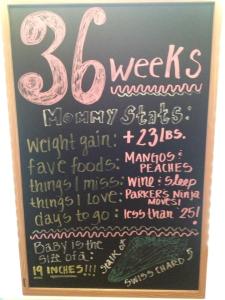 36 weeks
Mommy Stats:
weight gain: +23 lbs.
fave foods: MANGOS & PEACHES
things I miss: wine & sleep
things I love: PARKERS NINJA MOVES!
days to go: less than 25!
BABY IS THE
SIZE OF A:
19 INCHES!!!
STALK OF
SWISS CHARD